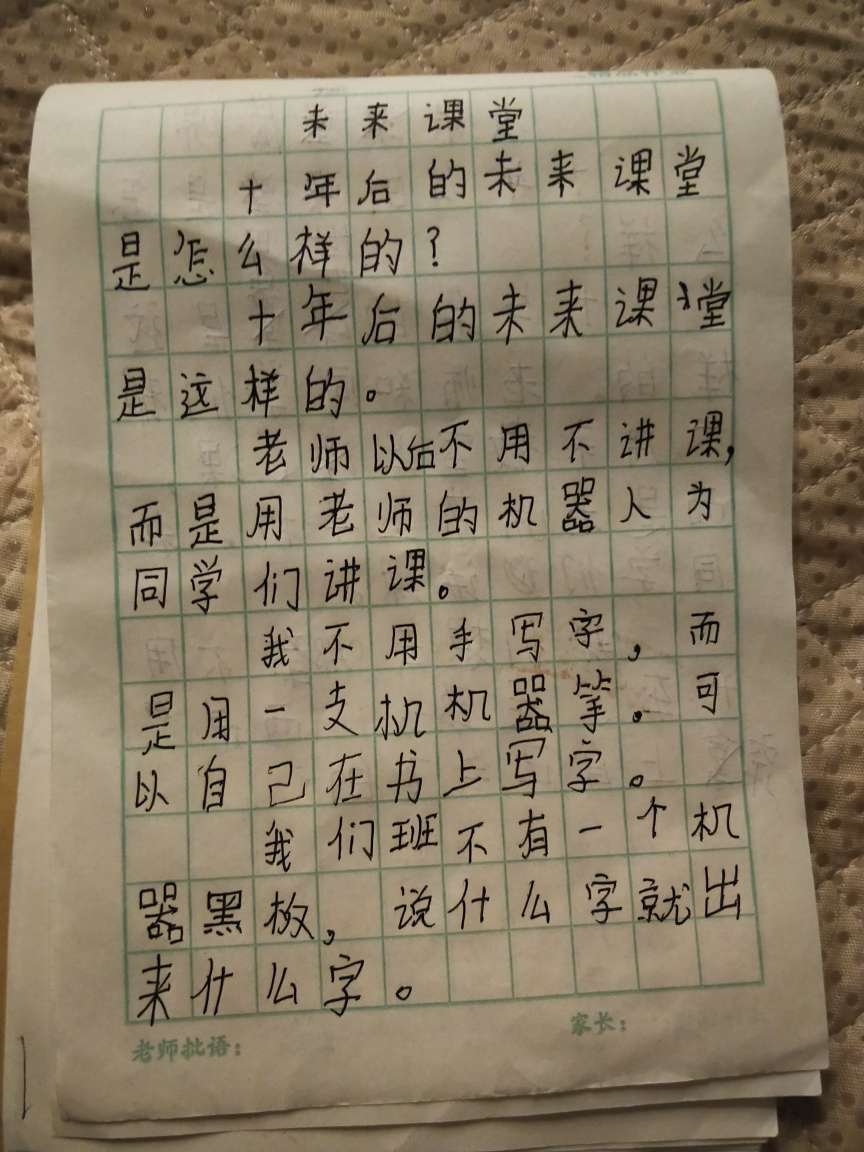 未来课堂
十年后的未来课堂
是怎么样的?
十年后的未来课堂
是这样的。
老师以后不用不讲课,
而是用老师的机器人为
同学们讲课。
我不用手写字,而
是用一支机机器笔。可
以自己在书上写字。
我们班不有一个机
器黑板,说什么字就出
来什么字。
老师批语:
家长: